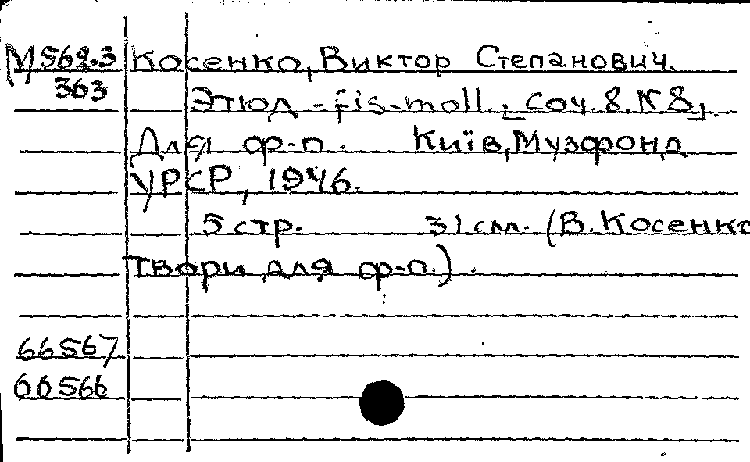 М562.3 Косенко, Виктор Степанович.
363 Этюд - fis-moll. [соч. 8. №8].
Для ф-п. Київ, Музфонд
УРСР, 1946.
5 стр. 31 см. (В. Косенко
Твори для ф-п.).
66567
66566